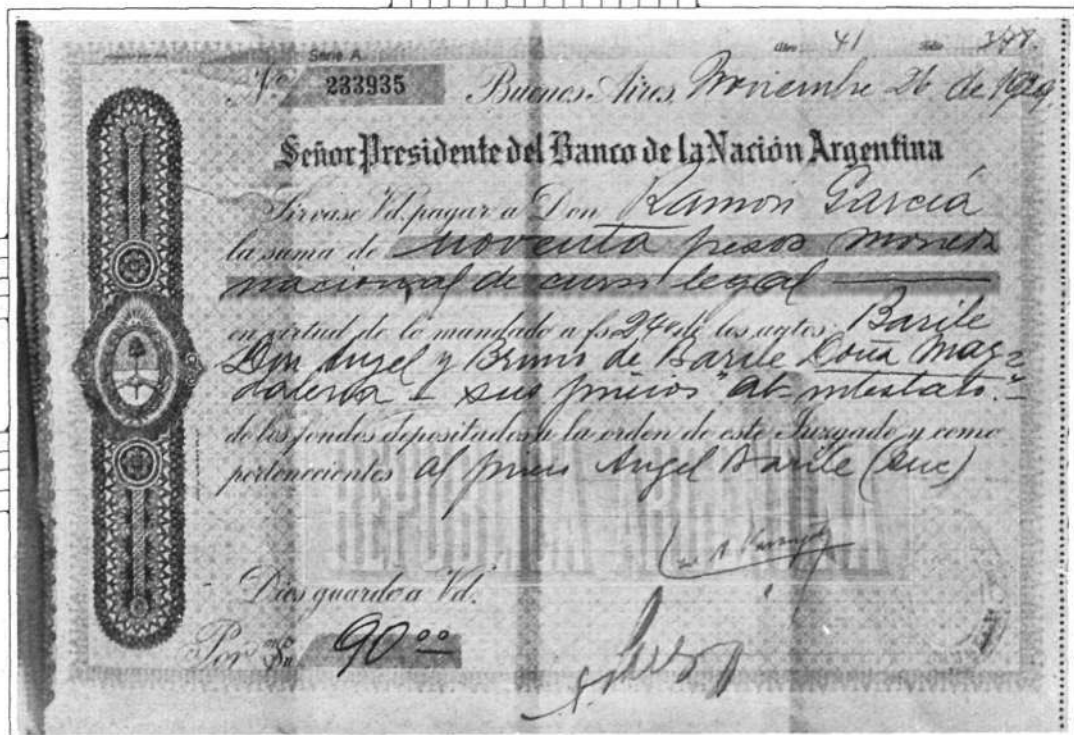 Libro 41 Folio 378.
Serie A.
Nº 233935 Buenos Aires, Noviembre 26 de 1929.
Señor Presidente del Banco de la Nación Argentina
Sírvase Vd. pagar a Don Ramón García
la suma de noventa pesos moneda
nacional de curso legal
en virtud de lo mandado a fs. 240 de los autos Barile
Don Angel y Bruno de Barile Doña Mag-
dalena - sus juicios "ab-intestato."-
de los fondos depositados a la orden de este Juzgado y como
pertenecientes al juicio Angel Barile (suc)
REPUBLICA ARGENTINA
Dios guarde a Vd.
Por $ m/n 90 00